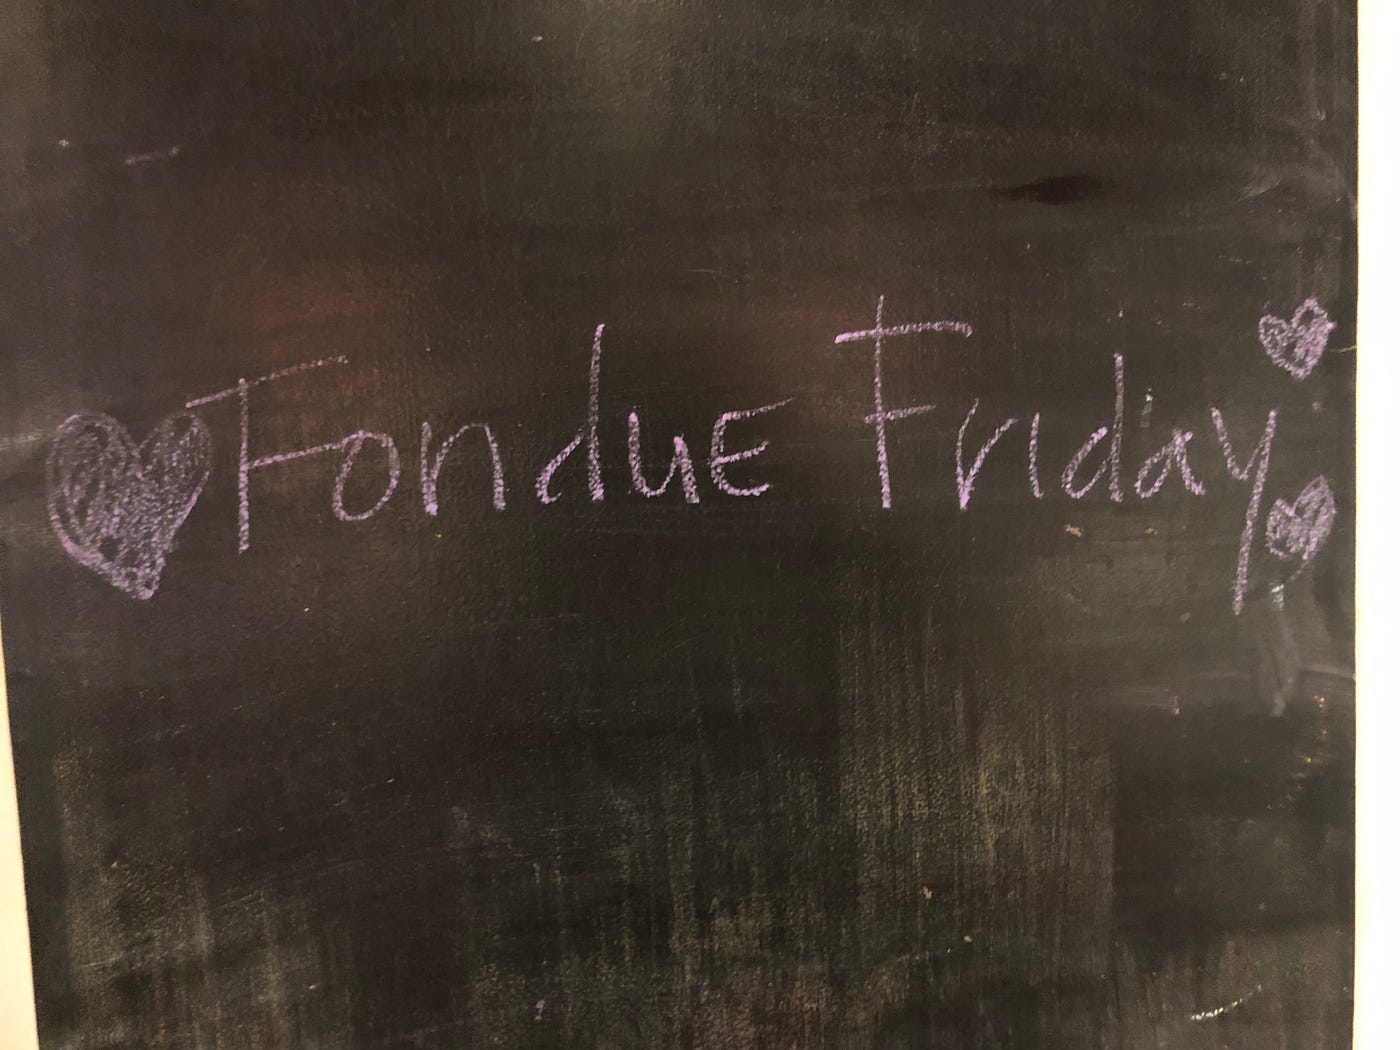 Fondue Friday